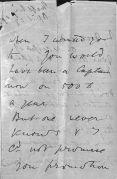 when I wanted you
to You would
have been a Captain
now on 500 £
a year.
But one never
knows & I
cd not promise
you promotion